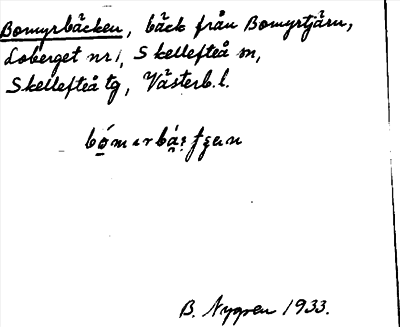 Bomyrbäcken, bäck från Bomyrtjärn,
Loberget nr 1, Skellefteå sn,
Skellefteå tg, Västerb. l.
B. Nygren 1933.